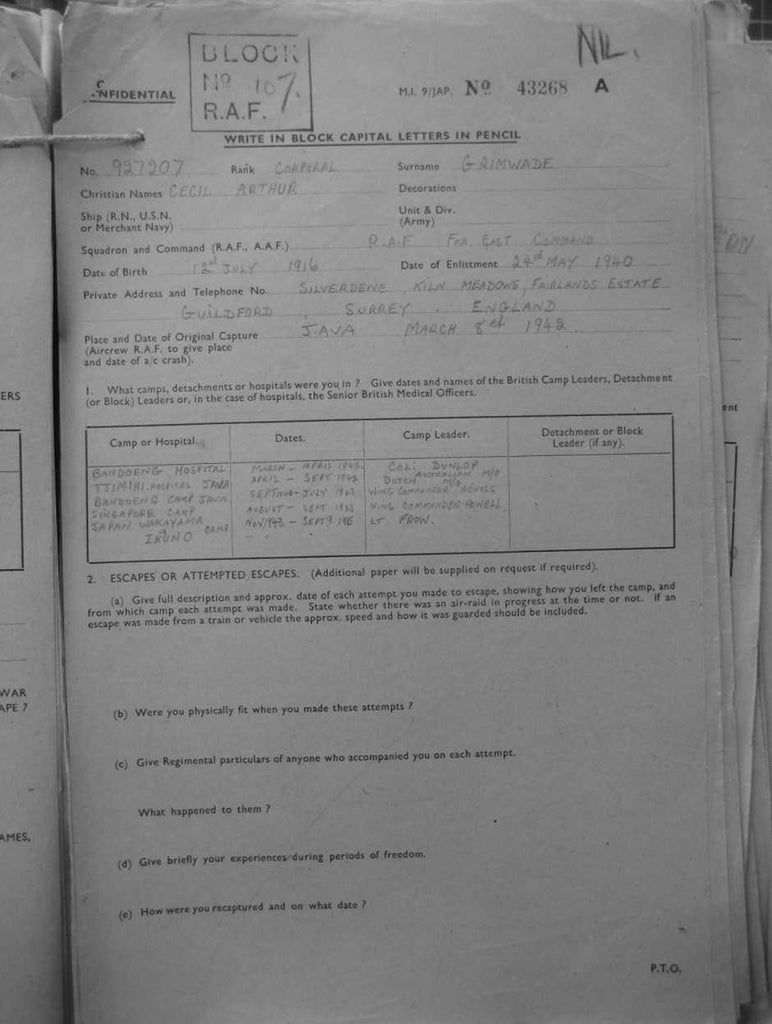 NIL.
BLOCK
Nº 107.
R.A.F.
CONFIDENTIAL
M.I. 9/JAP. Nº 43268 A
WRITE IN BLOCK CAPITAL LETTERS IN PENCIL
No. 927207 Rank CORPORAL Surname GRIMWADE
Christian Names CECIL ARTHUR Decorations
Ship (R.N., U.S.N. or Merchant Navy) Unit & Div. (Army)
Squadron and Command (R.A.F., A.A.F.) R.A.F FAR EAST COMMAND
Date of Birth 12th JULY 1916 Date of Enlistment 24th MAY 1940
Private Address and Telephone No. SILVERDENE, KILN MEADOWS, FAIRLANDS ESTATE
GUILDFORD, SURREY. ENGLAND
Place and Date of Original Capture JAVA MARCH 8th 1942.
(Aircrew R.A.F. to give place
and date of a/c crash).
1. What camps, detachments or hospitals were you in ? Give dates and names of the British Camp Leaders, Detachment
(or Block) Leaders or, in the case of hospitals, the Senior British Medical Officers.
Camp or Hospital. Dates. Camp Leader. Detachment or Block Leader (if any).
BANDOENG HOSPITAL MARCH - APRIL 1942. COL. DUNLOP AUSTRALIAN M/O
TJIMIHI. HOSPITAL JAVA APRIL - SEPT 1942 DUTCH M/O
BANDOENG CAMP JAVA JULY WING COMMANDER
SINGAPORE CAMP AUGUST - SEPT WING COMMANDER HOWELL
JAPAN WAKAYAMA NOV 1943 - SEPT LT FROW.
IKUNO CAMP
2. ESCAPES OR ATTEMPTED ESCAPES. (Additional paper will be supplied on request if required).
(a) Give full description and approx. date of each attempt you made to escape, showing how you left the camp, and
from which camp each attempt was made. State whether there was an air-raid in progress at the time or not. If an
escape was made from a train or vehicle the approx. speed and how it was guarded should be included.
(b) Were you physically fit when you made these attempts ?
(c) Give Regimental particulars of anyone who accompanied you on each attempt.
What happened to them ?
(d) Give briefly your experiences during periods of freedom.
(e) How were you recaptured and on what date ?
P.T.O.
ERS
WAR
APE ?
AMES,
ent